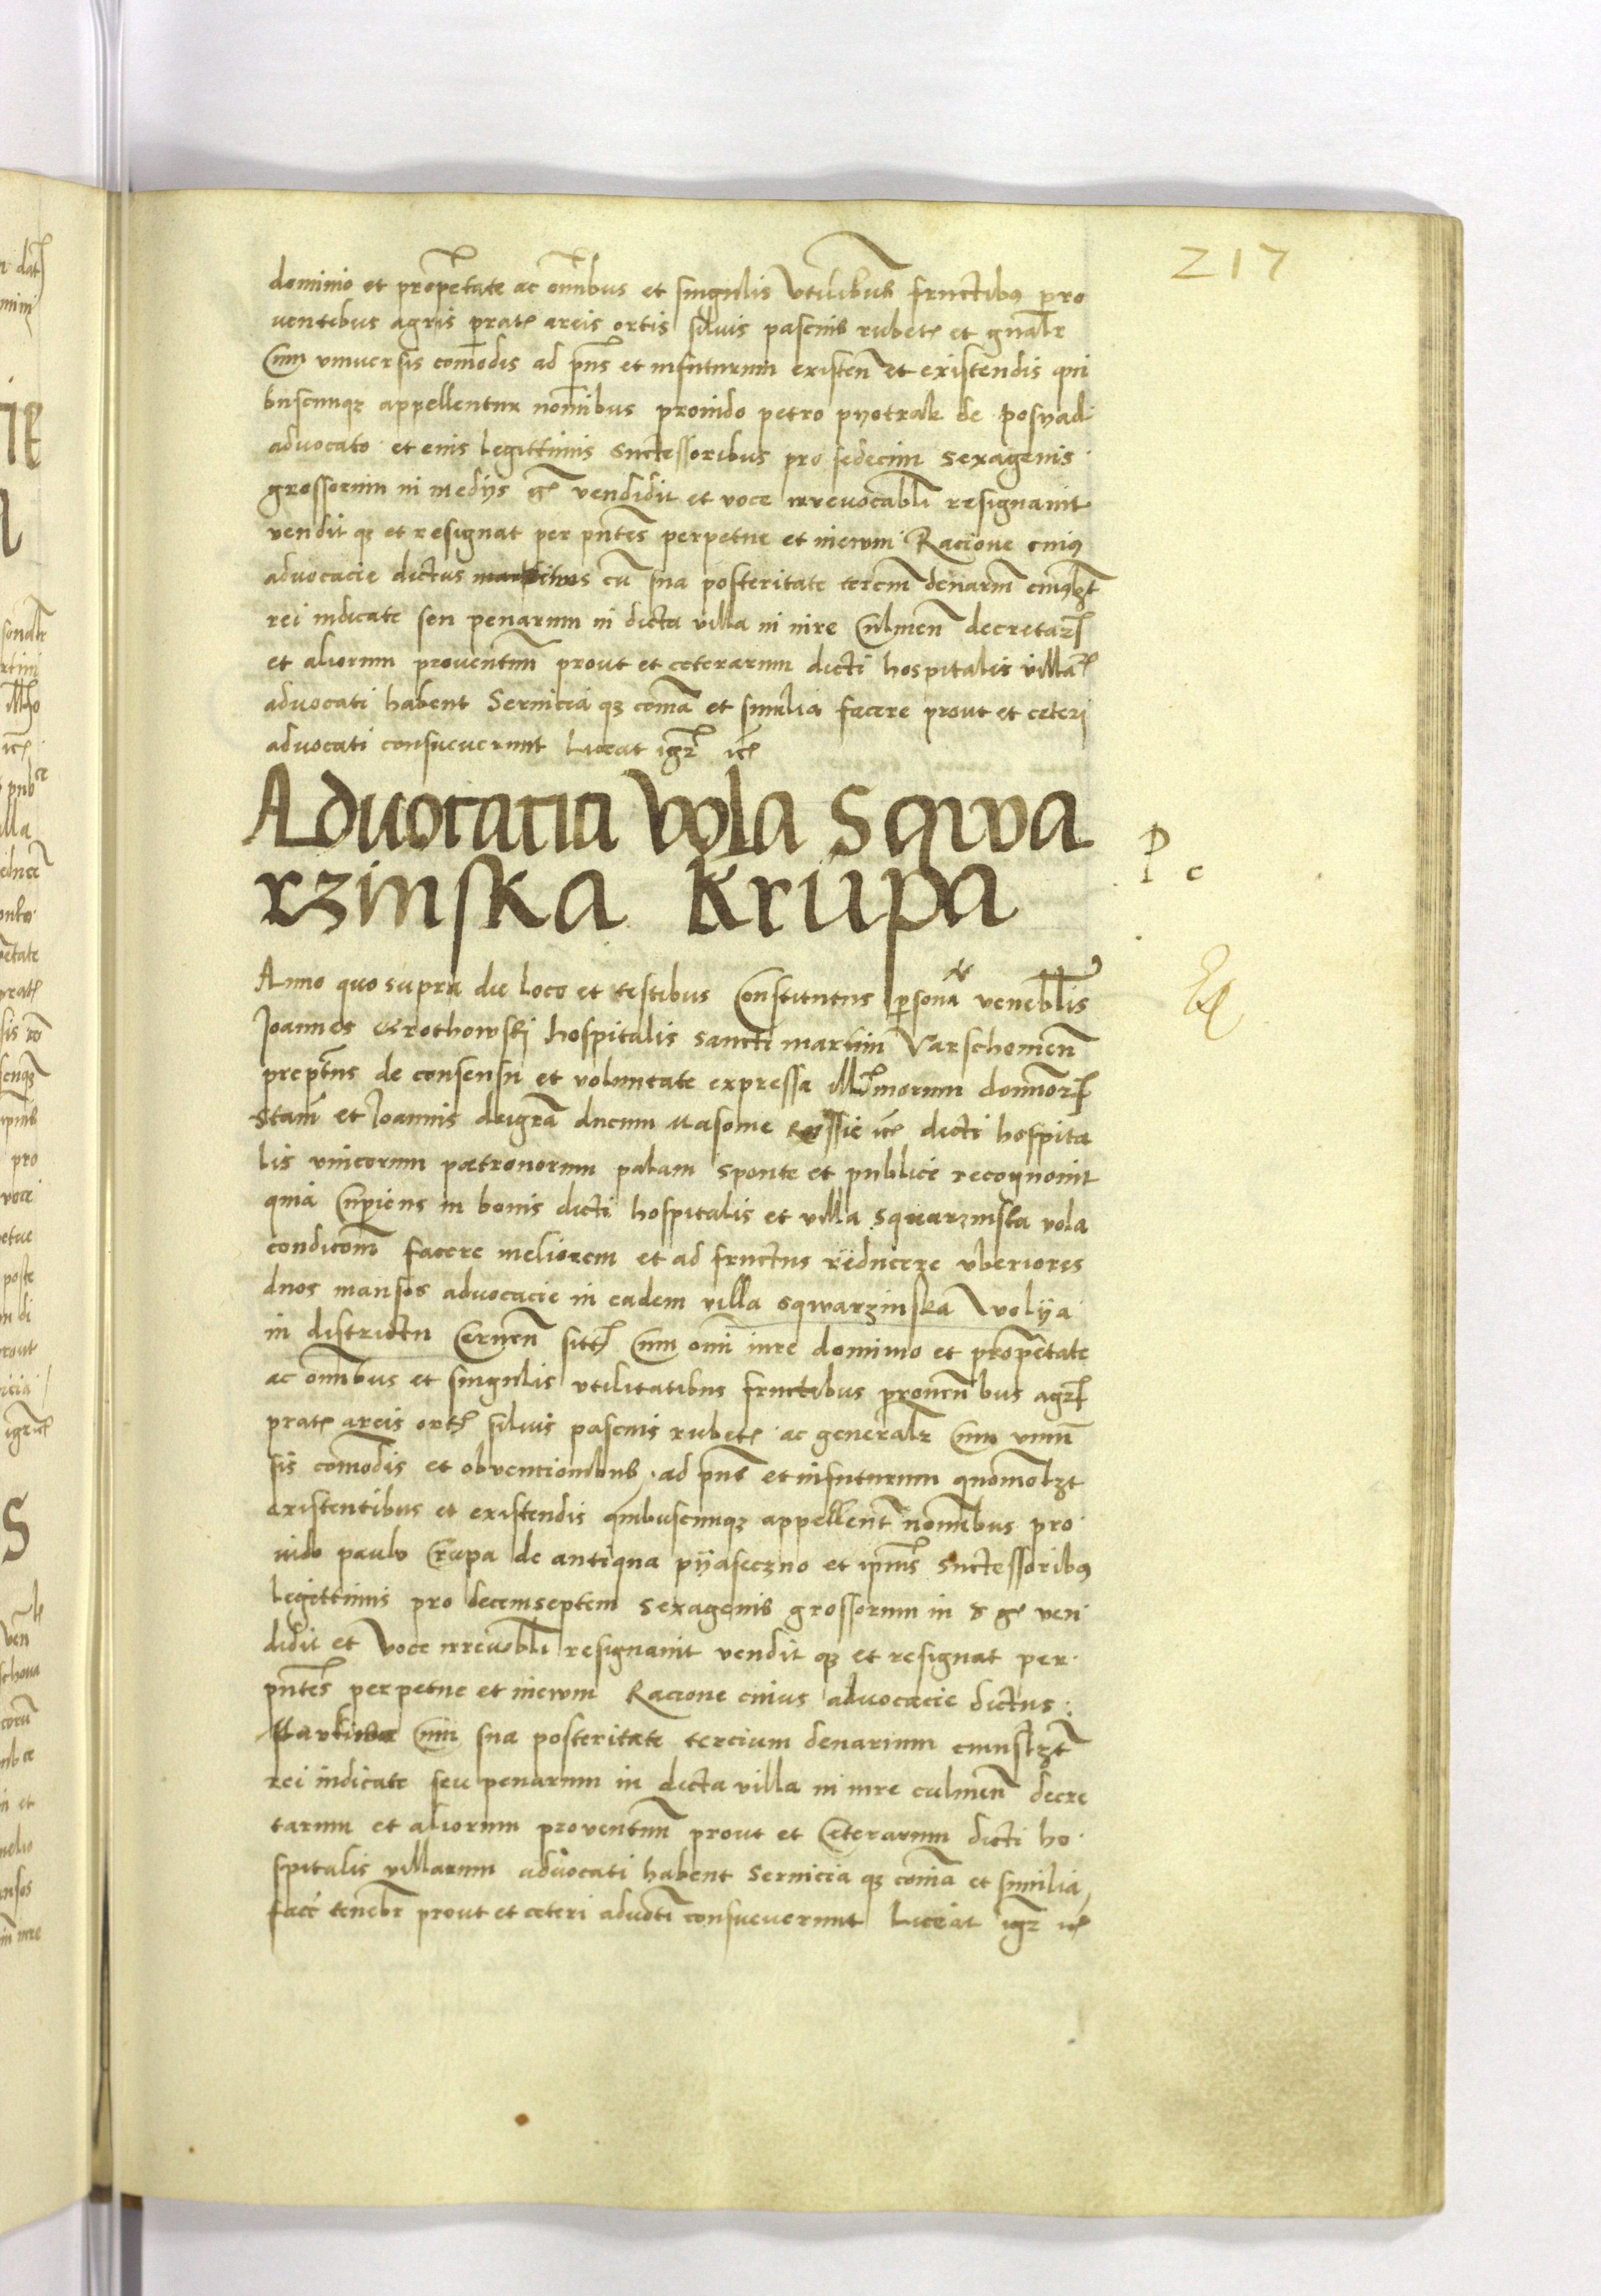 217
dominio et prop̄etate ac om̄ibus et singulis vtilibus fructibus pro
uentibus agris prat areis ortis siluis pascuis rubet et gnalr
Cum vniuersis com̄odis ad p̄ns et infuturum existen̄ et existendis qui
buscunqz appellentur nom̄ibus prouido petro pyotrak de
aduocato et eius legittimis Suctessoribus pro sedecim sexagenis
grossorum in medijs g vendidit et voce irreuocabl̄i resignauit
vendit qz et resignat per pn̄tes perpetue et ineuum Racione cuius
aduocacie dictus cū sua posteritate tercm̄ denarm̄
rei iudicate seu penarum in dicta villa in iure Culmen̄ decretarꝝ
et aliorum prouentum̄ prout et ceterarum dicti hospitalis villaꝝ
aduocati habent Seruicia qz com̄a et similia facere prout et ceteri
aduocati consueuerunt Liceat igr̄ ꝛc
Aduocatia Vola Sqwa
rzinska Krupa
P c
Anno quo supra die loco et testibus Constitutus p̱sonar venebl̄is
Joannes Grothowskj hospitalis sancti martini Varschouien̄
prept̄us de consensu et voluntate expressa Ill̄morum domnorꝝ
Stan̄ et Joannis deigrā ducum Masouie Rossie ꝛc dicti hospita
lis vnicorum patronorum palam sponte et publice recognouit
quia Cupiens in bonis dicti hospitalis et villa squarzinska vola
condicom̄ facere meliorem et ad fructus reducere vberiores
duos mansos aduocacie in eadem villa sqwarzinska Wolya
in districtu Cernen̄ sitꝭ Cum om̄i iure dominio et prop̄etate
ac om̄ibus et singulis vtilitatibus fructibus prouen̄bus agrꝭ
pratꝭ areis ortꝭ siluis pascuis rubetꝭ ac generalr̄ Cum vniū
sis com̄odis et obuencionibus ad p̄ns et infuturum quomōlzt
existentibus et existendis quibuscunqz appellent̄ nom̄ibus pro
uido paulo Crupa de antiqua pyaseczno et ip̄ius Suctessoribus
legittimis pro decemseptem sexagenis grossorum in d gꝭ ven
didit et voce irreuobl̄i resignauit vendit qz et resignat per
pn̄tes perpetue et ineuum Racione cuius aduocacie dictus
Cum sua posteritate tercium denarium cuiuslzt̄
rei iudicate seu penarum in dicta villa in iure culmen̄ decre
tarum et aliorum prouentum̄ prout et Ceterarum dicti ho
spitalis villarum aduocati habent Seruicia qz com̄a et similia
facē tenebr̄ prout et ceteri aduoti consueuerunt Liceat igr̄ ꝛc